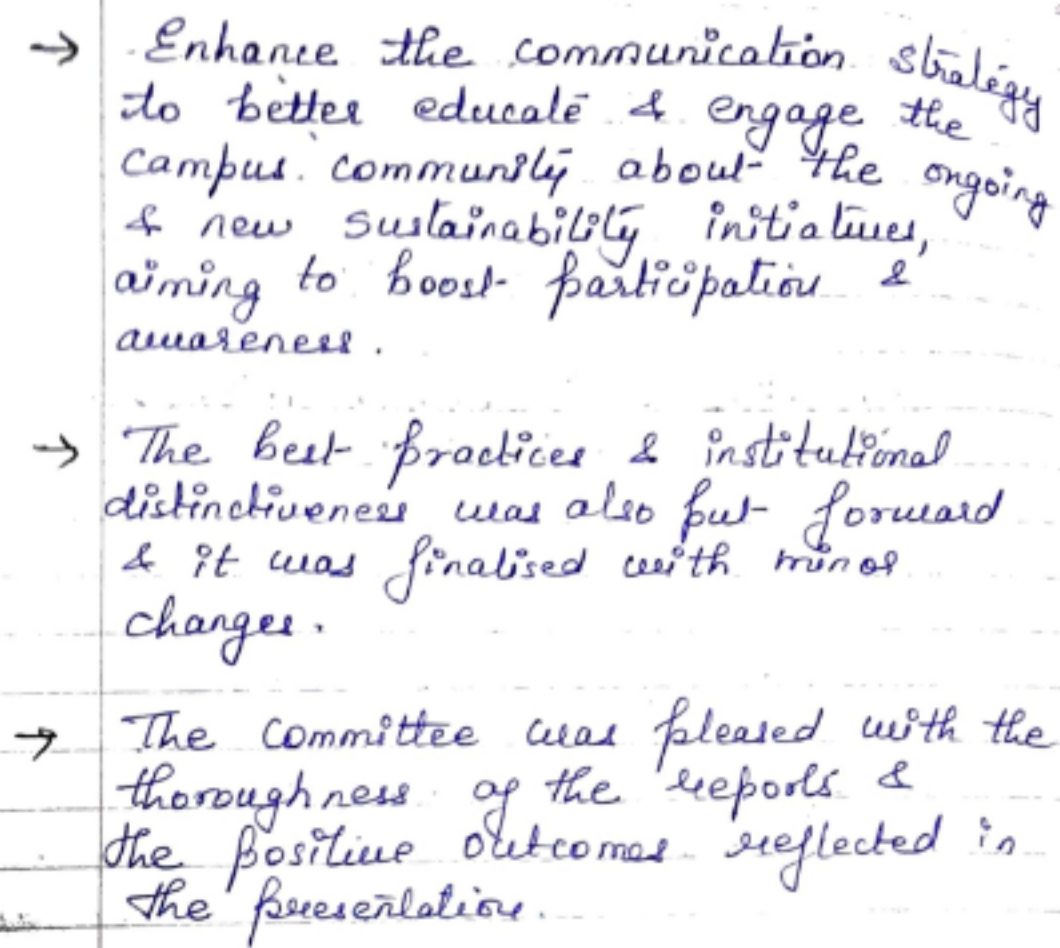 → Enhance the communication strategy
to better educate & engage the
campus community about the ongoing
& new sustainability initiatives,
aiming to boost participation &
awareness.
→ The best practices & institutional
distinctiveness was also put forward
& it was finalised with minor
changes.
→ The committee was pleased with the
thoroughness of the reports &
the positive outcomes reflected in
the presentation.